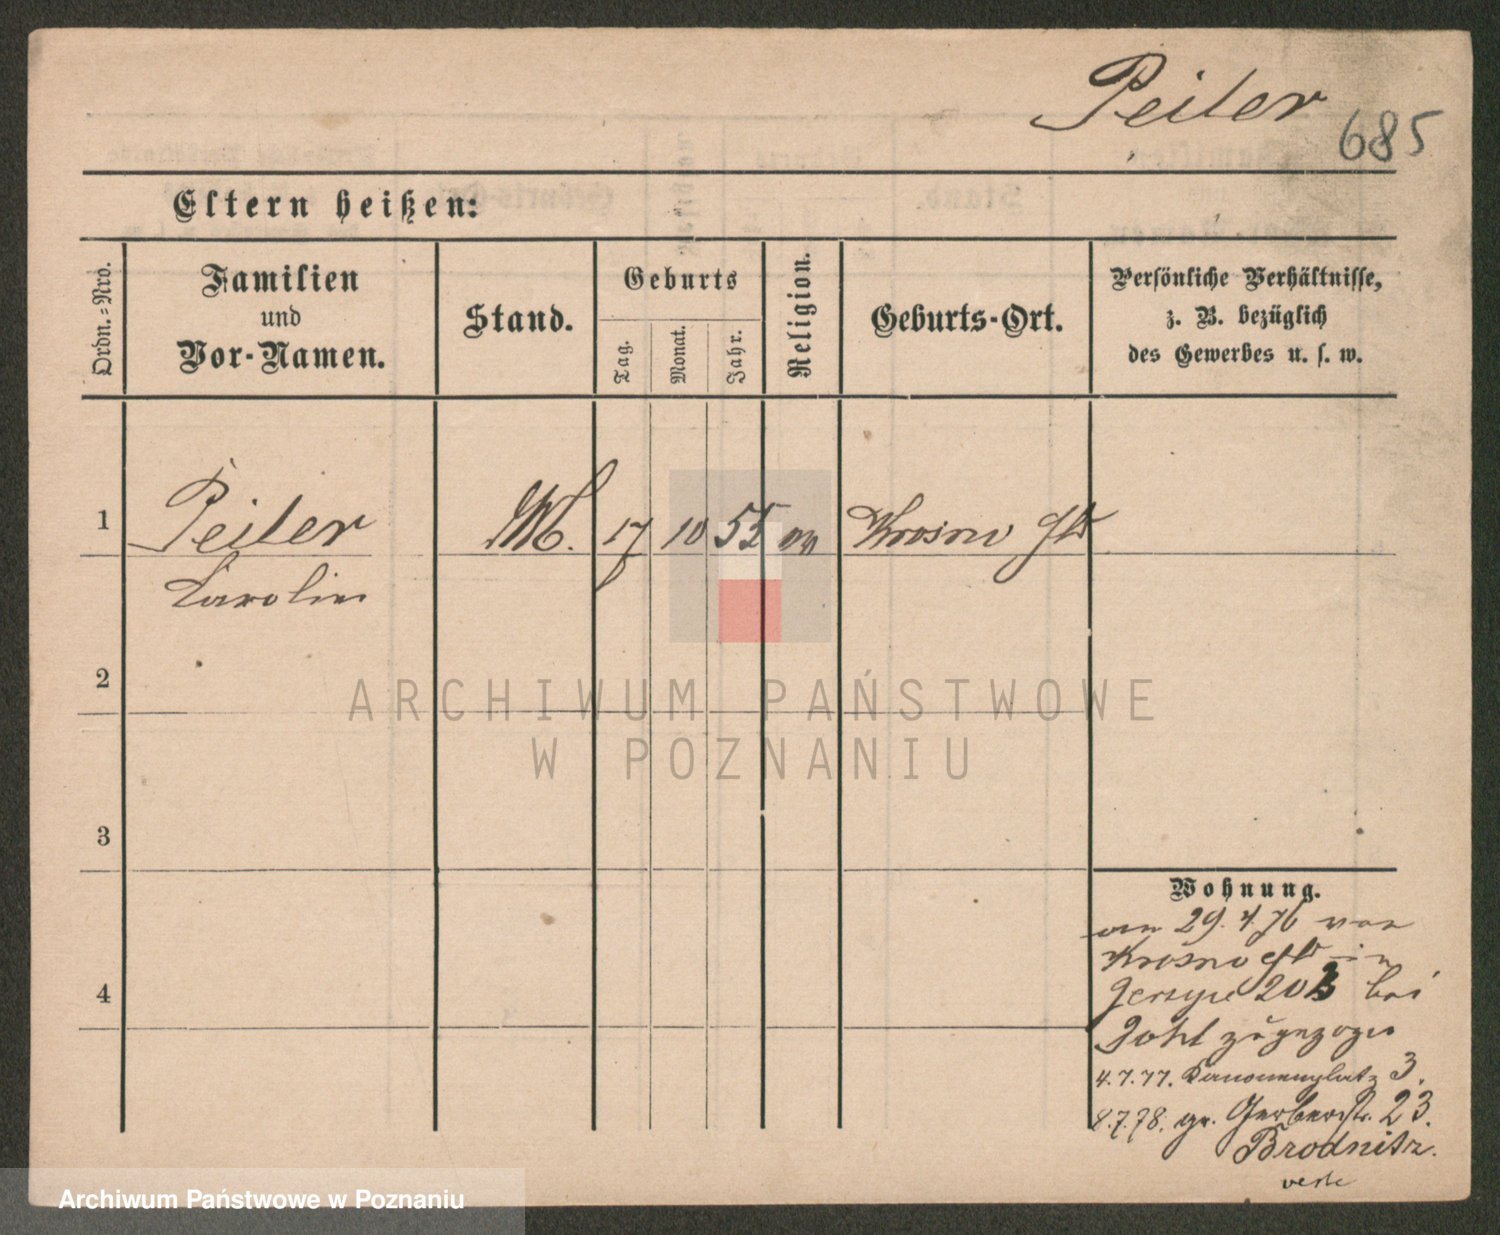 Peiler
685
Eltern heißen:
Ordn.=Nro.
Familien
und
Vor-Namen.
Stand.
Geburts
Tag.
Monat.
Jahr.
Religion.
Geburts-Ort.
Persönliche Verhältnisse,
z. B. bezüglich
des Gewerbes u. s. w.
1
Peiler
M.
17
10
55
Krosno
Carolin
2
ARCHIWUM PAŃSTWOWE
W POZNANIU
3
Wohnung.
am 29. 4 76 von
Krosno in
Jersyce 203 bei
Pohl zugezogen
4.7.77. Kanonenplatz 3.
7.78. gr. Gerberstr. 23.
Brodnitz.
4
Archiwum Państwowe w Poznaniu